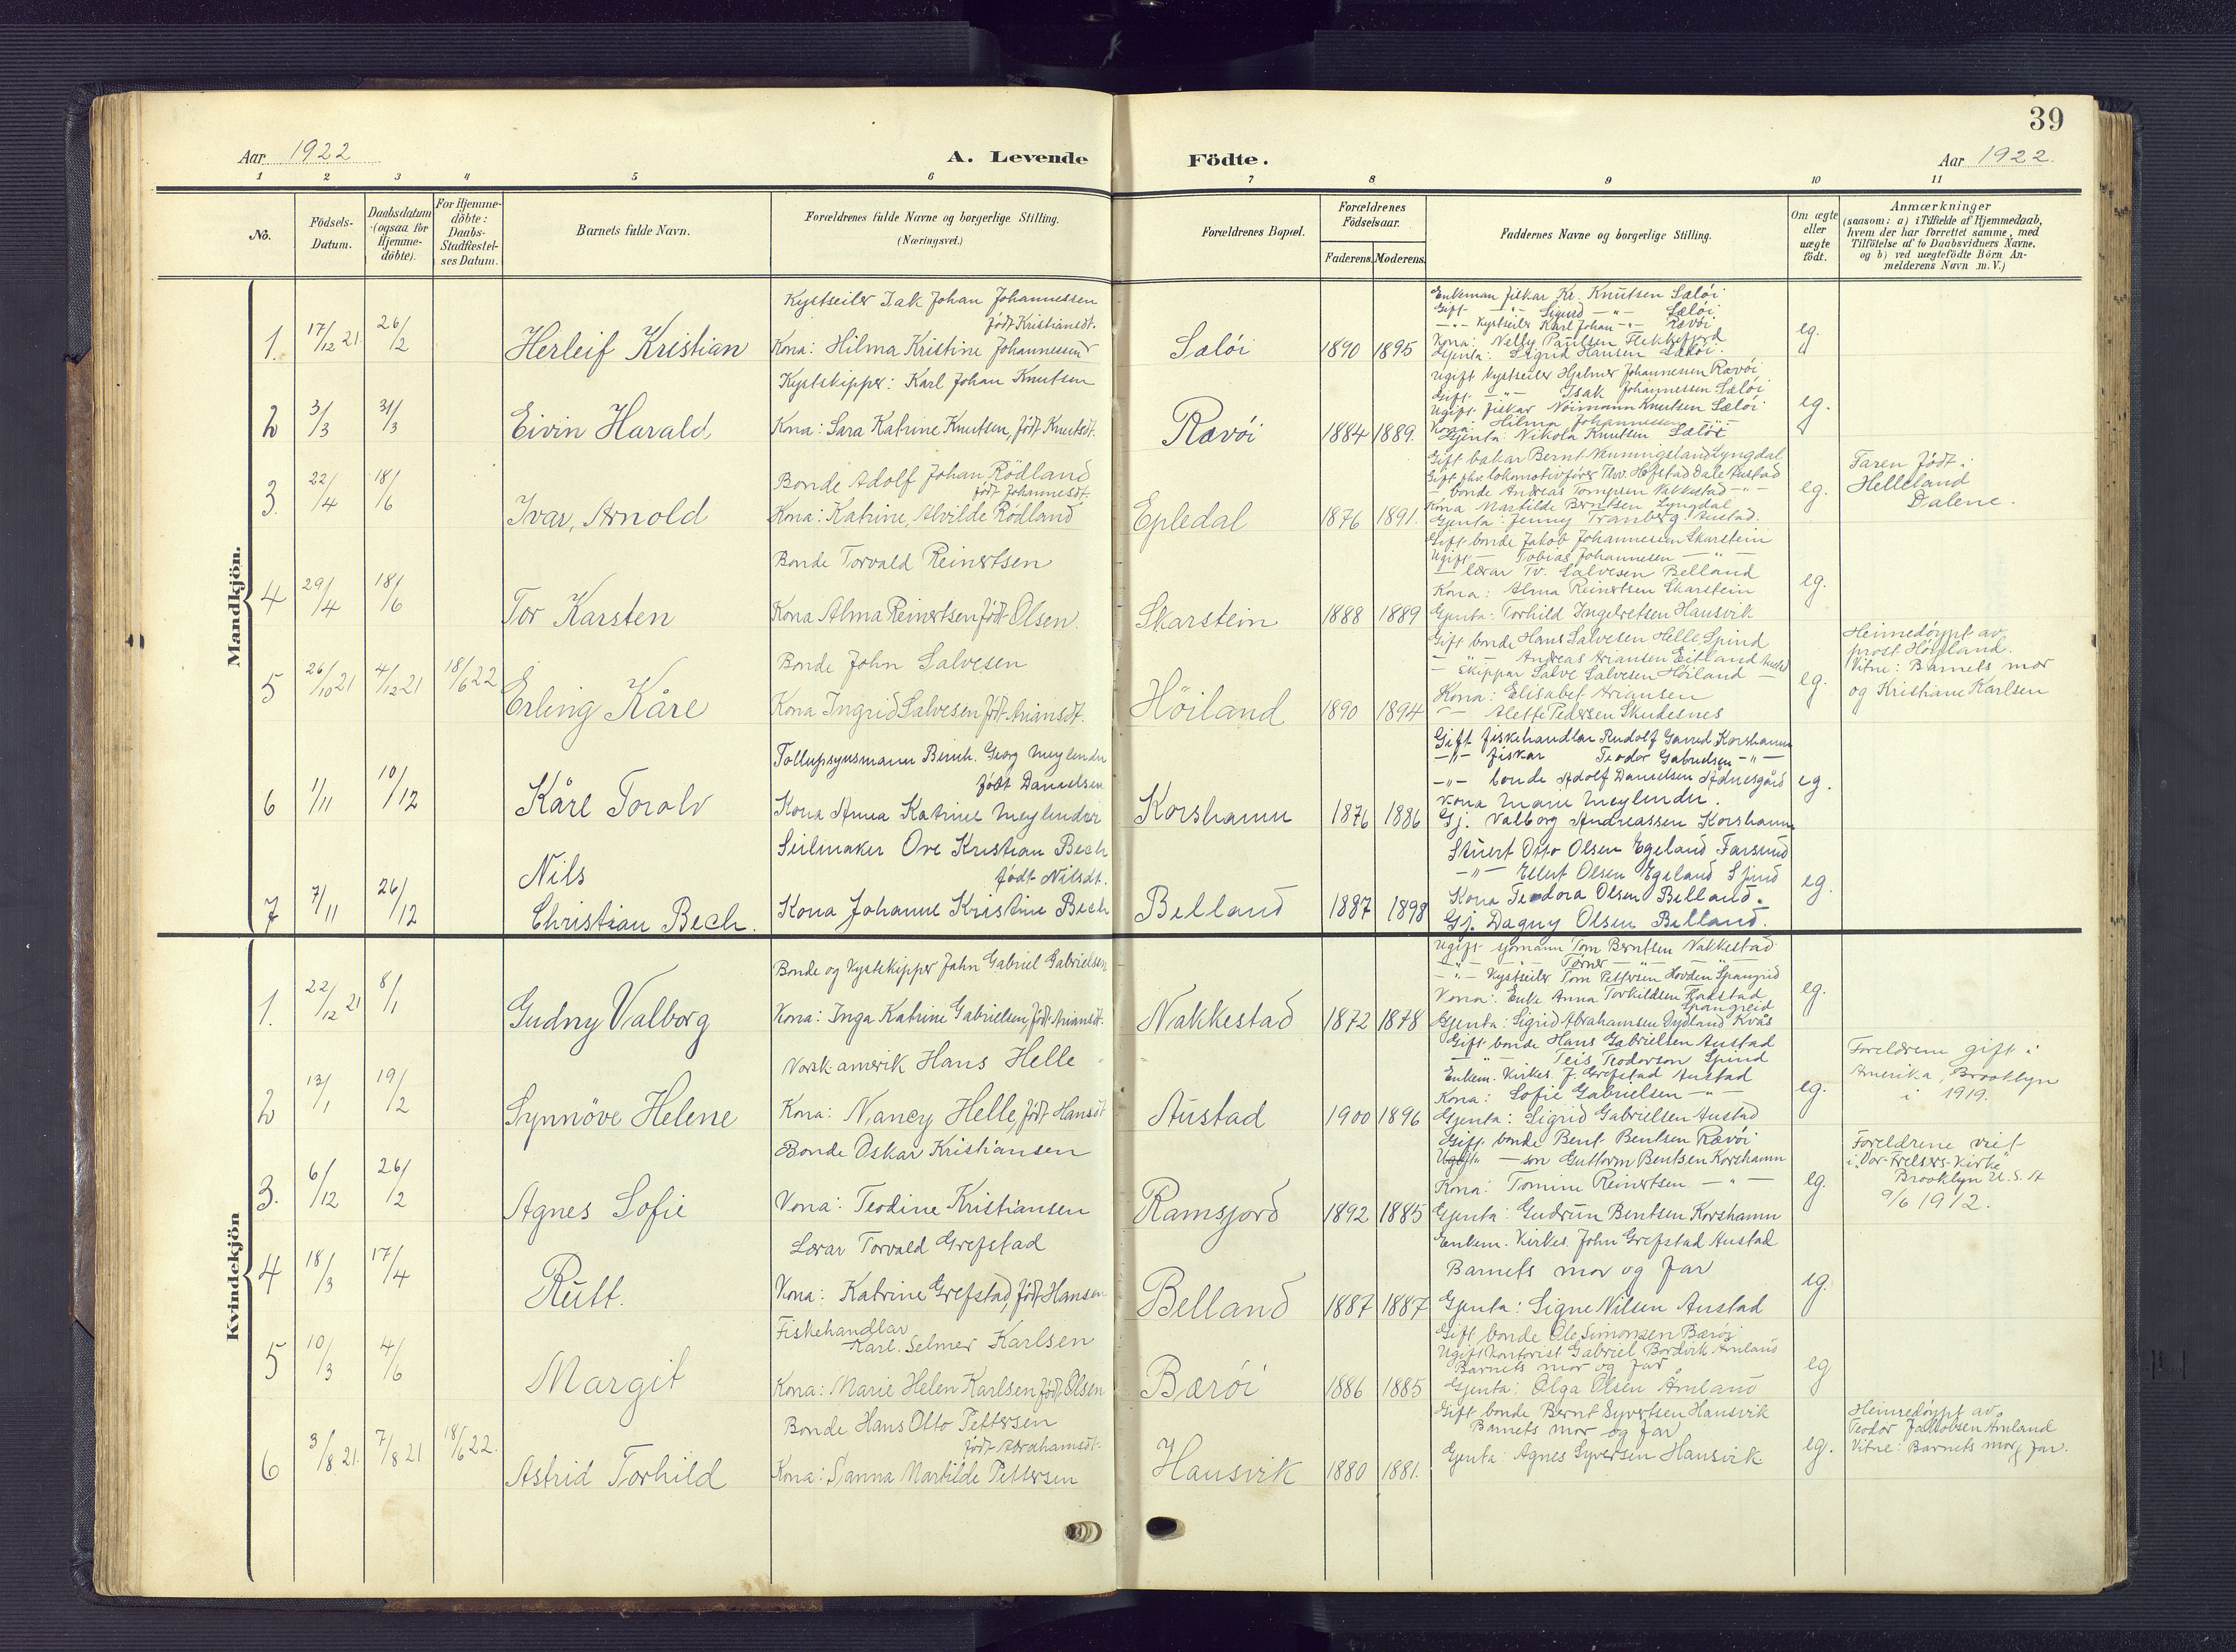 39
Aar 1922
A. Levende
Födte.
Aar 1922.
1 2 3 4 5 6 7 8 9 10 11
No.
Födsels-
Datum.
Daabsdatum
(ogsaa for
Hjemme-
döbte).
For Hjemme-
döbte:
Daabs-
Stadfæstel-
ses Datum.
Barnets fulde Navn.
Forældrenes fulde Navne og borgerlige Stilling.
(Næringsvei.)
Forældrenes Bopæl.
Forældrenes
Födselsaar.
Faderens.
Moderens.
Faddernes Navne og borgerlige Stilling.
Om ægte
eller
uægte
födt.
Anmærkninger
(saasom: a) i Tilfælde af Hjemmedaab,
hvem der har forrettet samme, med
Tilföielse af to Daabsvidners Navne,
og b) ved uægtefödte Börn An-
melderens Navn m. V.)
Mandkjön.
1. 17/12 21 26/2
Herleif Kristian
Kystseiler Isak Johan Johannessen
född Kristiansdt.
Kona: Hilma Kristine Johannessen
Sælöi
1890 1895
Enkeman fiskar Kr. Knutsen Sælöi
Gift -"- Sigurd -"- Sælöi
-"- Kystseiler Karl Johan -"- Rævöi
Kona: Nelly Paulsen Flekkefjord
Gjenta: Sigrid Hansen Sælöi.
eg.
2 3/3 31/3
Eivin Harald
Kystskipper: Karl Johan Knutsen
Kona: Sara Katrine Knutsen, födt Knutsdt.
Rævöi
1884 1889.
Ugift Kystseiler Hjalmer Johannessen Rævöi
Gift -"- Isak Johannessen Sælöi
Ugift fiskar Nöimann Knutsen Sælöi
Kona: Hilma Johannessen -"-
Gjenta: Nikola Knutsen Sælöi
eg.
3. 22/4 18/6
Ivar, Arnold
Bonde Adolf Johan Rödland
födt Johannesdt.
Kona: Katrine, Alvilde Rödland
Epledal
1876 1891.
Gift bakar Bernt Nenningsland Lyngdal
Gift fhv. lokomotivförer Thv. Hofstad Dale Austad
- bonde Andreas Tompsen Nakkestad -"-
Kona Martilde Berntsen Lyngdal
Gjenta: Jenny Tranberg Austad.
eg.
Faren födt i
Helleland
Dalene.
4 29/4 18/6
Tor Karsten
Bonde Torvald Reinertsen
Kona Alma Reinertsen födt Olsen.
Skarstein
1888 1889
Gift bonde Jakob Johannessen Skarstein
Ugift - Tobias Johannesen -"-
- lærar Tv. Salvesen Belland
Kona: Alma Reinertsen Skarstein
Gjenta: Torhild Ingebretsen Hausvik
eg.
5 26/10 21 4/12 21 18/6 22
Erling Kåre
Bonde John Salvesen
Kona Ingrid Salvesen födt Ariansdt.
Höiland
1890 1894
Gift bonde Hans Salvesen Helle Spind
- " - Andreas Ariansen Eitland Austad
- Skippar Salve Salvesen Höiland -
Kona: Elisabet Ariansen
- Alette Pedersen Skudesnes
eg.
Heimedöypt av
prost Höyland.
Vitne: Barnets mor
og Kristiane Karlsen
6 1/11 10/12
Kåre Torolv
Tollupsynsmann Bernh. Georg Meylender
födt Danielsen
Kona Anna Katrine Meylender
Korshamn
1876 1886
Gift fiskehandlar Rudolf Korshamn
-"- fiskar Teodor Gabrielsen -"-
-"- bonde Adolf Danielsen Ådnesgård
Kona Marie Meylender.
Gj. Valborg Andreassen Korshamn
eg.
7 7/11 26/12
Nils
Christian Bech.
Seilmaker Ove Kristian Bech
födt Nilsdt.
Kona Johanne Kristine Bech
Belland
1887 1898
Stuert Otto Olsen Egeland Farsund
-"- Eilert Olsen Egeland Spind
Kona Teodora Olsen Belland.
Gj. Dagny Olsen Belland.
eg.
Kvindekjön
1. 22/12 21 8/1
Gudny Valborg
Bonde og Kystskipper Jahn Gabriel Gabrielsen
Kona: Inga Katrine Gabrielsen, födt Ariansdt.
Nakkestad
1872 1878
Ugift sjömann Tom Berntsen Nakkestad
-"- -"- Törner -"- -"-
-"- Kystseiler Tom Pettersen Hovden Spangrid
Kona: Enke Anna Torkildsen Haastad
Spangreid
Gjenta: Sigrid Abrahamsen Dydland Kvås
eg.
2 13/1 19/2
Synnöve Helene
Norsk-amerik Hans Helle
Kona: Nancy Helle, födt Hansdt
Austad
1900 1896
Gift bonde Hans Gabrielsen Austad
-"- Teis Teodorson Spind
Enkem. Kirkes. J. Grefstad Austad
Kona: Sofie Gabrielsen -"-
Gjenta: Sigrid Gabrielsen Austad
eg.
Foreldrene gift i
Amerika, Brooklyn
i 1919.
3. 6/12 26/2
Agnes Sofie
Bonde Oskar Kristiansen
Kona: Teodine Kristiansen
Ramsjord
1892 1885
Gift bonde Bent Bentsen Rævöi
Ugift -son Guttorm Bentsen Korshamn
Kona: Tomine Reinertsen -"-
Gjenta: Gudrun Bentsen Korshamn
eg.
Foreldrene viet
i "Vor-Frelsers-Kirke"
Brooklyn U.S.A
9/6 1912.
4 18/3 17/4
Rutt.
Lærar Torvald Grefstad
Kona: Katrine Grefstad, födt Hansen
Belland
1887 1887
Enkem. Kirkes. John Grefstad Austad
Barnets mor og far
Gjenta: Signe Nilsen Austad
eg.
5 10/3 4/6
Margit
Fiskehandlar
Karl. Selmer Karlsen
Kona: Marie Helen Karlsen födt Olsen
Bæröi
1886 1885
Gift bonde Ole Simonsen Bæröi
Ugift Kontorist Gabriel Bordvik Åmland
Barnets mor og far
Gjenta: Olga Olsen Åmland
eg
6 3/8 21. 7/8 21 18/6 22.
Astrid Torhild
Bonde Hans Otto Pettersen
födt Abrahamsdt.
Kona: Sanna Martilde Pettersen
Hausvik
1880 1881.
Gift bonde Bernt Syvertsen Hausvik
Barnets mor og far
Gjenta: Agnes Syversen Hausvik
eg.
Heimedöypt av
Teodor Jakobsen Åmland
Vitne: Barnets mor & far.